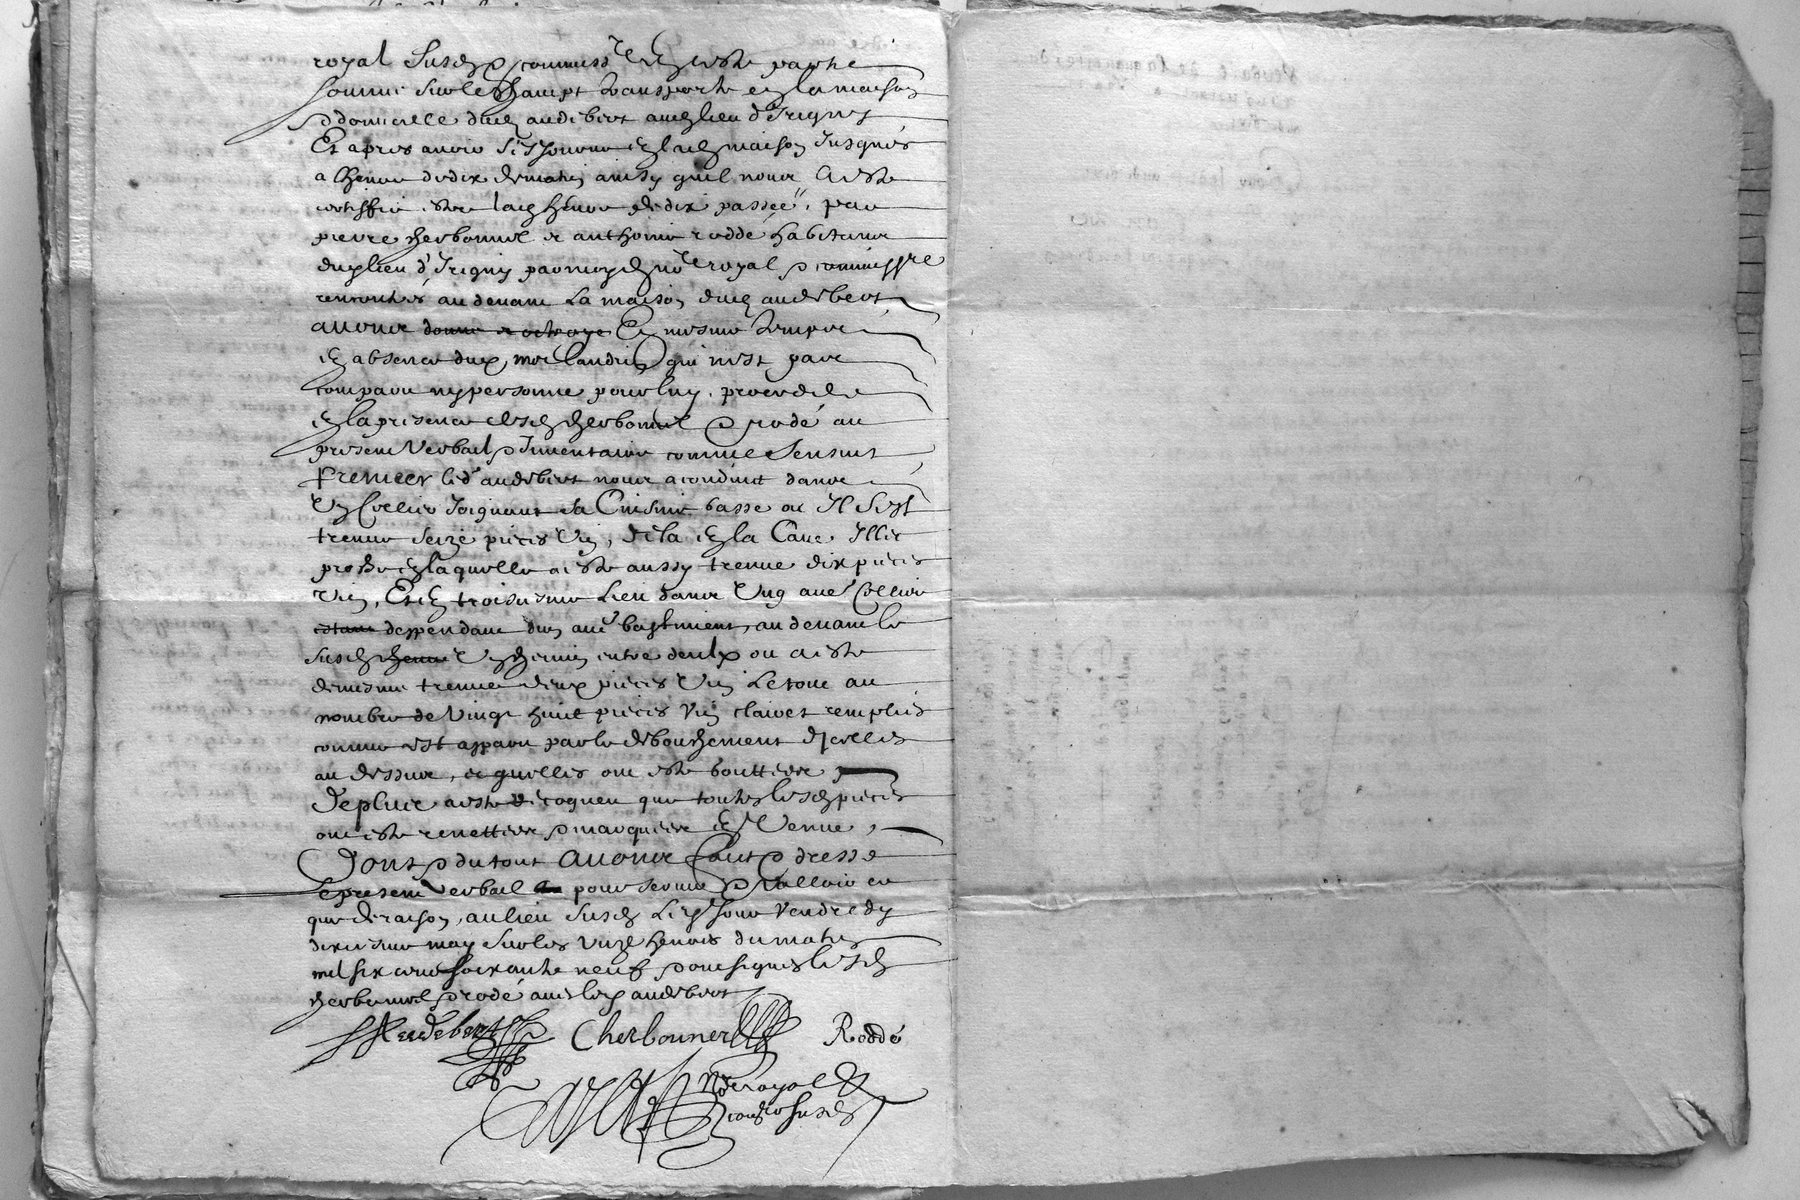 royal susd & commissre en ceste partie
sommes sur le champt transporté en la maison
& domicille dud audebert aud lieu d'Irigny
Et apres avoir séjourné en lad maison jusques
a lheure de dix de matin ainsy quil nous a esté
certiffié estre lad heure de dix passéé, par
pierre cherbonnel et anthoine roddé habitans
dud lieu d'Irigny par moy d nore royal & commissre
rencontrés au devant la maison dud audebert
avons donné et octroyé Et mesme temps
en absence dud, mre landrin qui n'est pas
comparu ny personne pour luy, procedé
en la presence desd cherbonnel & rodé au
present verbail & Inventaire comme sensuit
Premier led audebert nous a conduict dans
Un Cellier joignant sa Cuisine basse ou Il s'est
treuvé seize pieces vin, de la en la Cave Illec
proche en laquelle a esté aussy treuvé dix pieces
vin, Et en troisiesme lieu dans Ung autre Cellier
estant deppendant dun autre bastiment, au devant le
susd Un chemin entre deulx ou a esté
de mesme treuvé deux pieces vin Le tout au
nombre de vingt huict pieces vin clairet remplies
comme est apparu par le debouchement d'Icelles
au dessus, et quelles ont esté bouttées,
De plus a esté recogneu que toutes lesd pieces
ont esté & marquées en venue,
Dont & du tout avons faict & dressé
le present verbail pour servir & valloir ce
que de raison, au lieu susd Le jour vendredy
dixiesme may sur les unze heures du matin
mil six cent soixante neuf & ont signés lesd
cherbonnel & rodé avec led audebert
Audebert Cherbonnel Roddé
Nre royal
comre susd